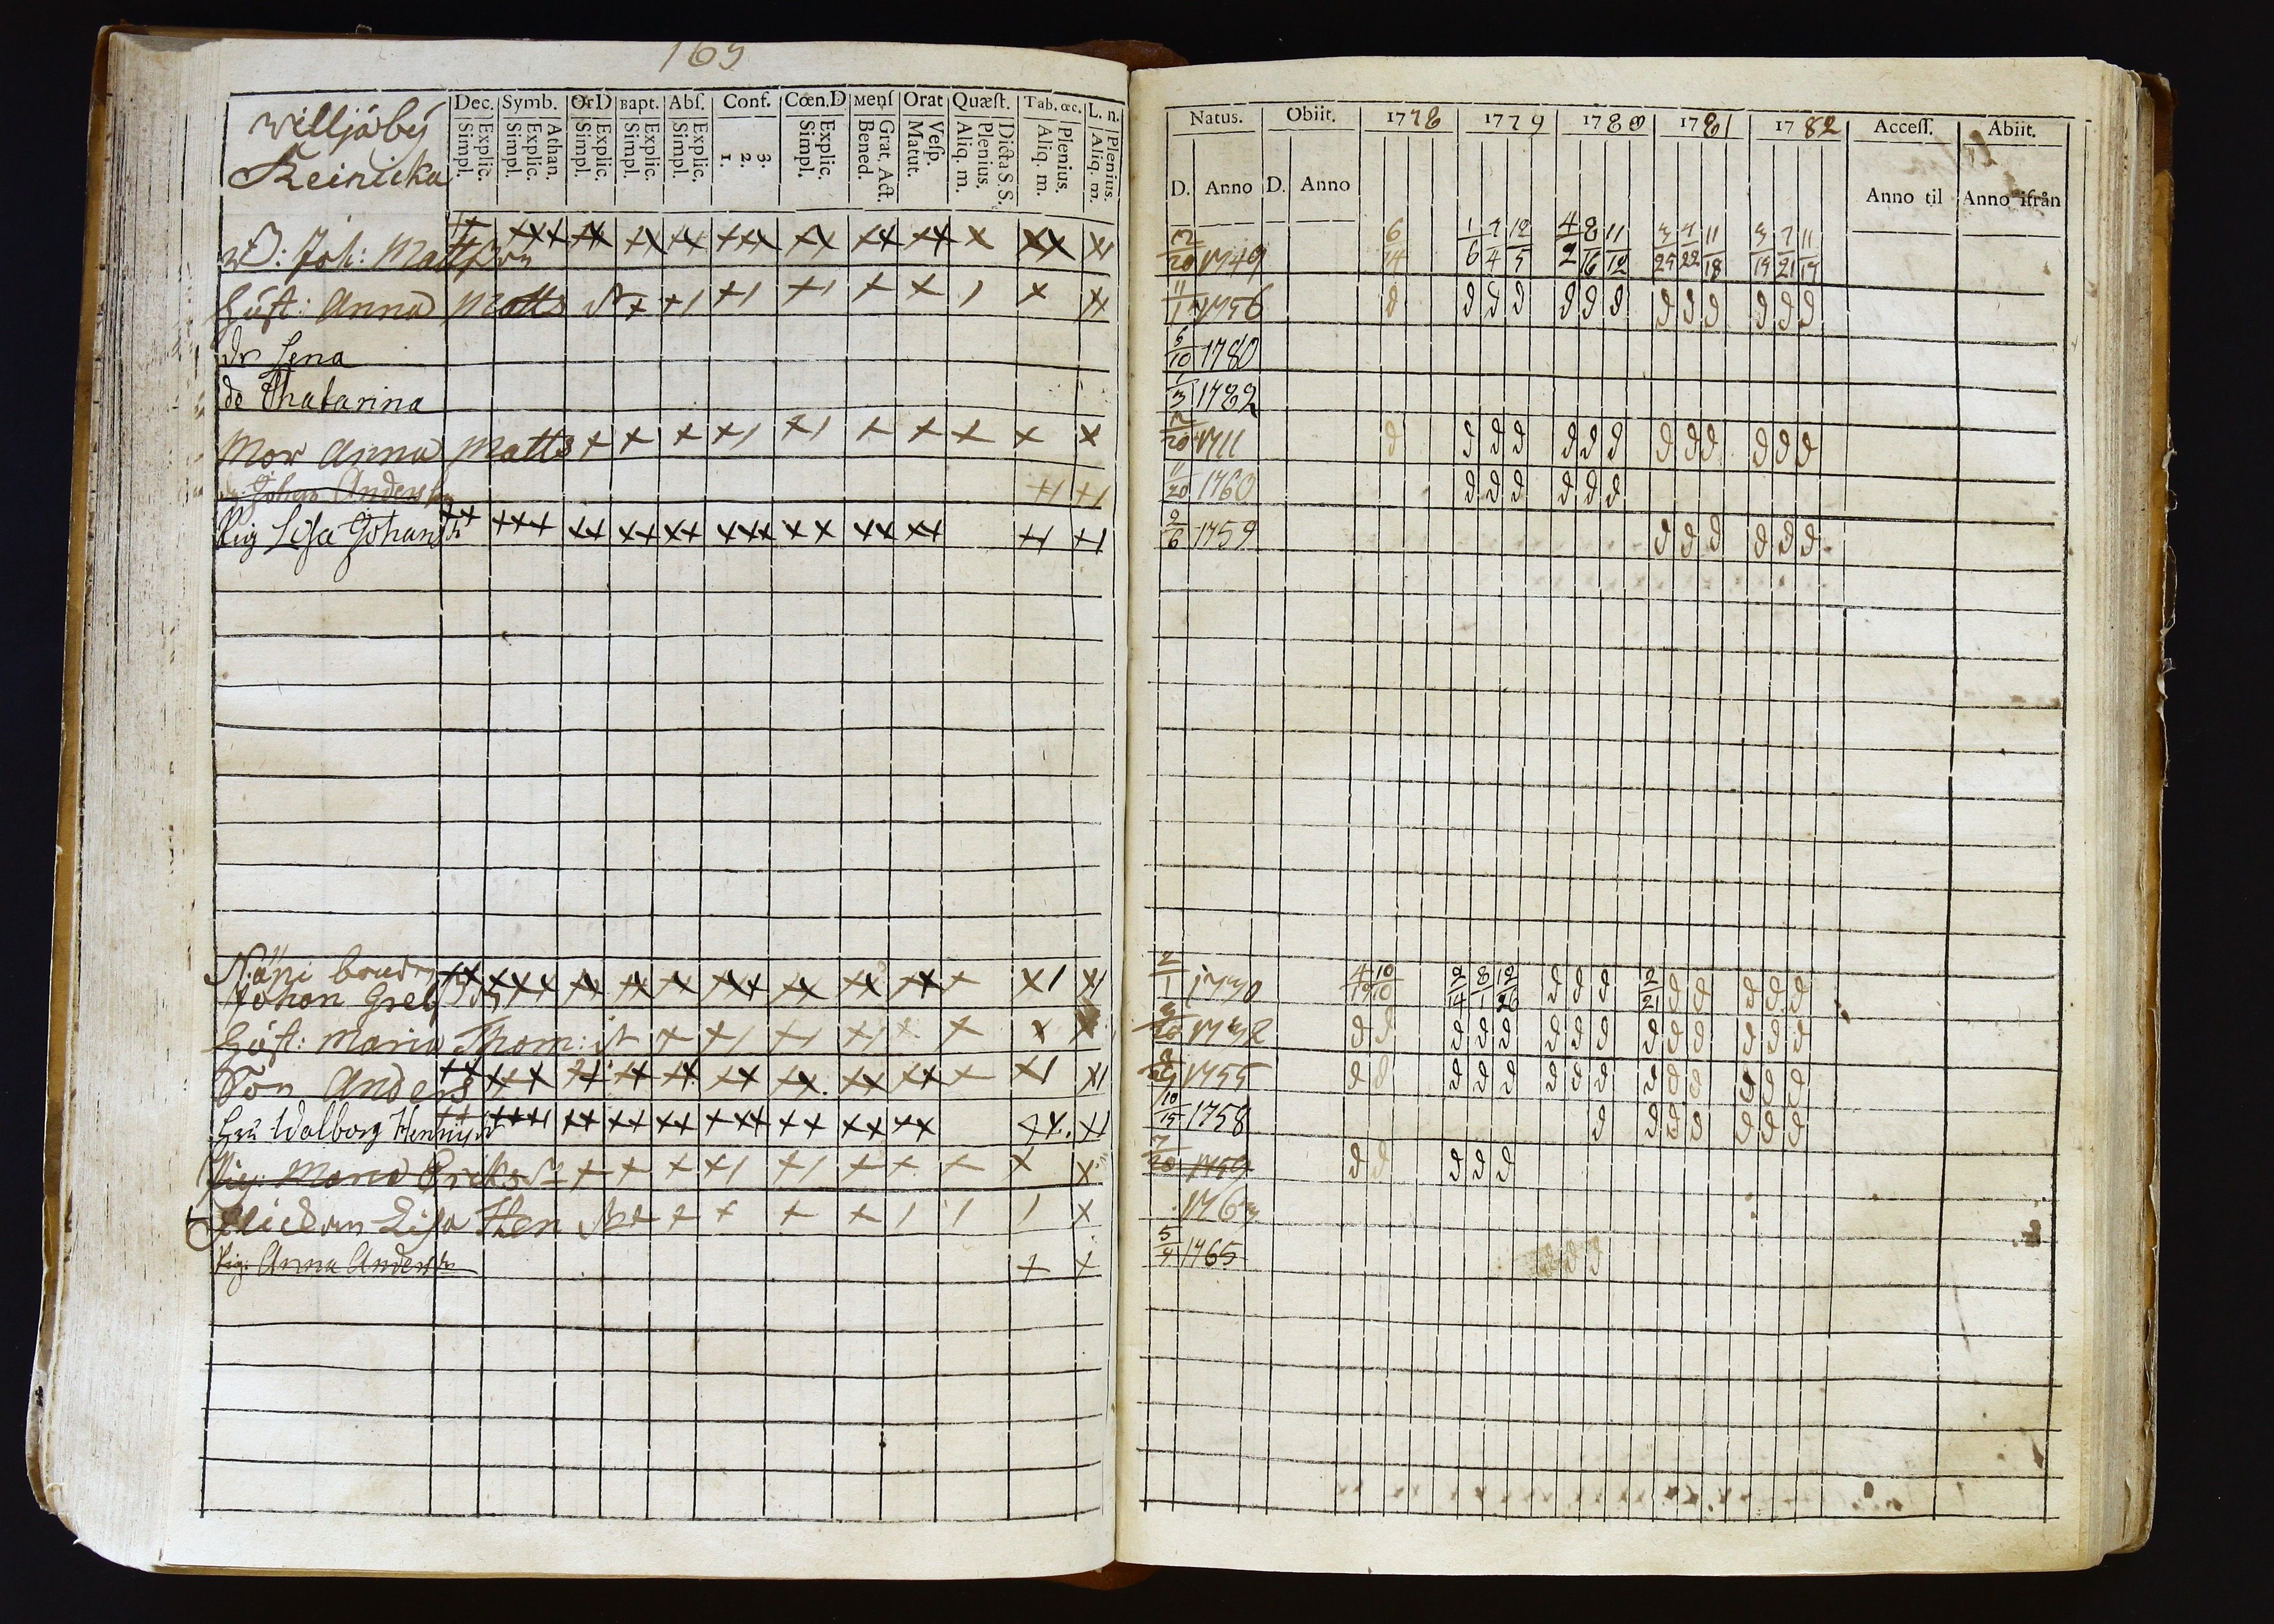 169
Willjäbÿ
Reinicka
Dec. Symb. Or D Bapt. Abſ. Conf. Cœn. D Menſ Orat Quæſt. Tab. œc. L. n.
Simpl. Explic. Simpl. Explic. Athan. Simpl. Explic. Simpl. Explic. Simpl. Explic. 1. 2. 3. Simpl. Explic. Bened. Grat. Act. Matut. Veſp. Aliq. m. Plenius. Dicta S.S. Aliq. m. Plenius. Aliq. m. Plenius.
Natus. Obiit. 1778 1779 1780 1781 1782 Acceſſ. Abiit.
D. Anno D. Anno Anno til Anno ifrån
Joh: Mattsson 1749 6/14 1/6 7/4 12/5 4/2 8/16 11/12 3/25 7/22 11/18 3/19 7/21 11/19
Hust: Anna Matts dr 11/1 1756 d d d d d d d d d d d d d
dr Lena 5/10 1780
do Chatarina 1/3 1782
Mor Anna Matts 1711 d d d d d d d d d d d d d
Johan Anderson 11/20 1760 d d d d d d
Pig Lisa Johans dr 2/6 1759 d d d d d d
Näpi bonden
Johan Grels son 2/1 1730 4/19 10/10 2/14 8/1 12/26 d d d 2/21 d d d d d
Hust: Maria Thom: dr 1732 d d d d d d d d d d d d d d
Son Anders 1755 d d d d d d d d d d d d d d
Hu Walborg Henrics dr 10/15 1758 d d d d d d d
Pig: Maria Eriks dr 7/20 1759 d d d d d
Flickan Lisa Hen dr 1763
Pig: Anna Anders dr 5/4 1765 d d